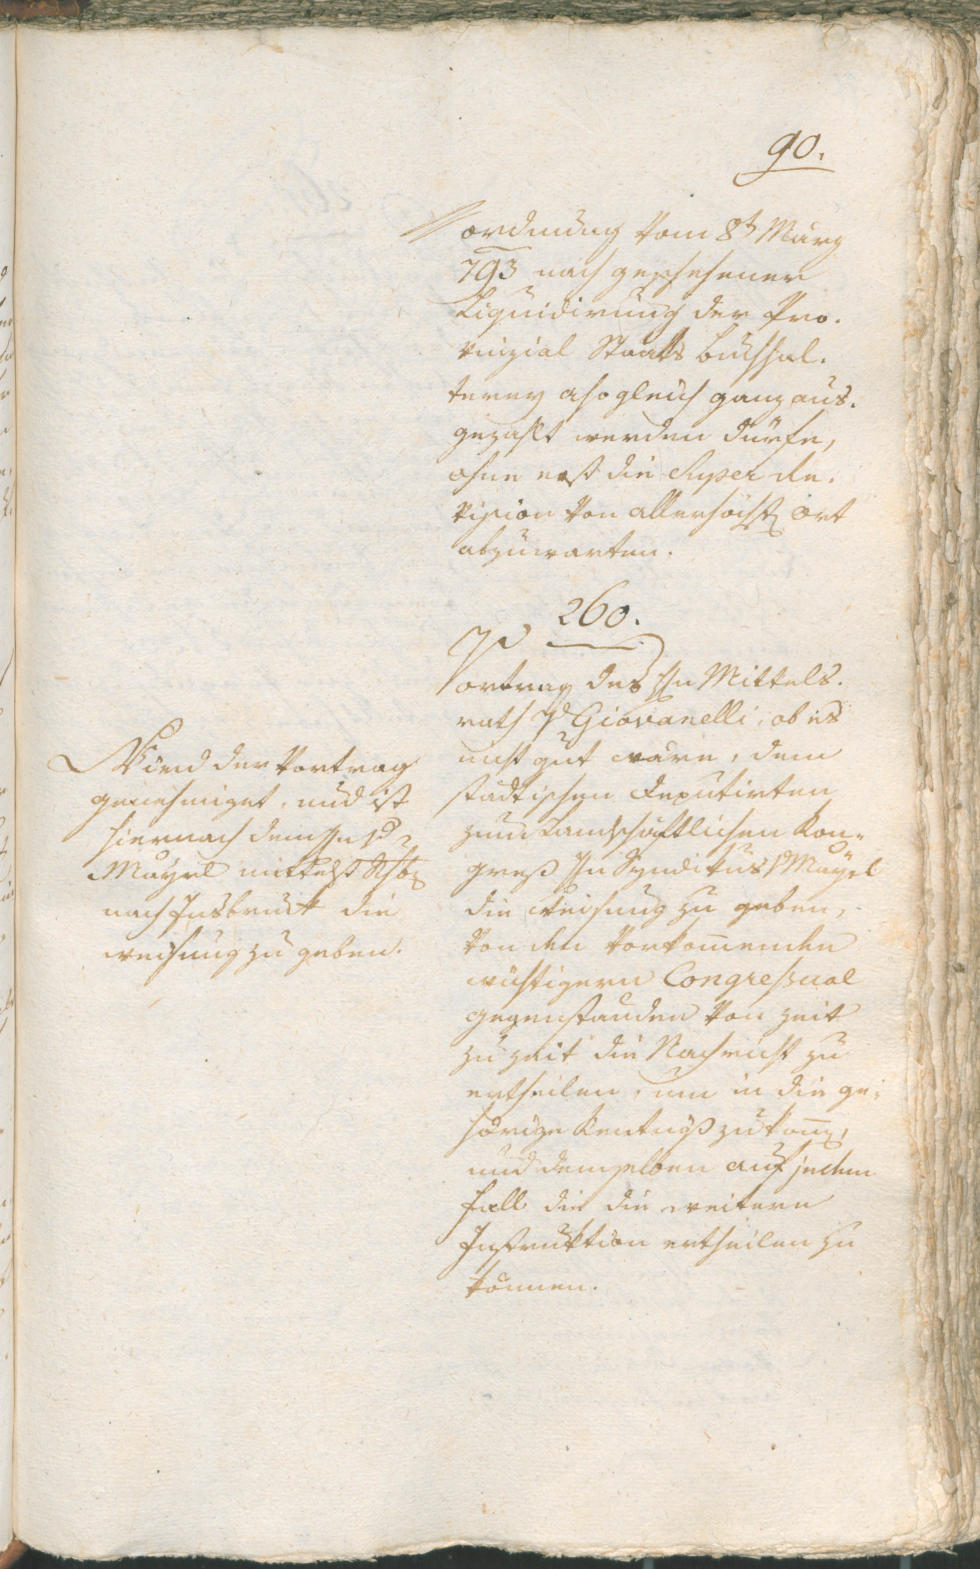 90.
ordnung vom 8t März
793 nach geschehener
Liquidirung der Pro¬
vinzial Staats Buchhal¬
terey also gleich ganz aus¬
gezahlt werden dürfe,
ohne erst die Super Re¬
vision von allerhöchst Ort
abzuwarten.
260.
Vortrag des Hn Mittels¬
rath v Giovanelli, ob es
nicht gut wäre, dem
städtischen Deputirten
zum Landschäftlichen Kon¬
greß Hn Syndikus v Mayrl
die Weisung zu geben,
von den vorkommenden
wichtigern Congressual
gegenständen von Zeit
zu Zeit die Nachricht zu
ertheilen, um in die ge¬
hörige Kentniß zu komen,
und demselben auf jeden
fall die die weitern
Instruktion ertheilen zu
können.
Wird der Vortrag
genehmiget, und ist
hiernach dem Hn v
Mayrl mittelst
nach Insbruck die
weisung zu geben.